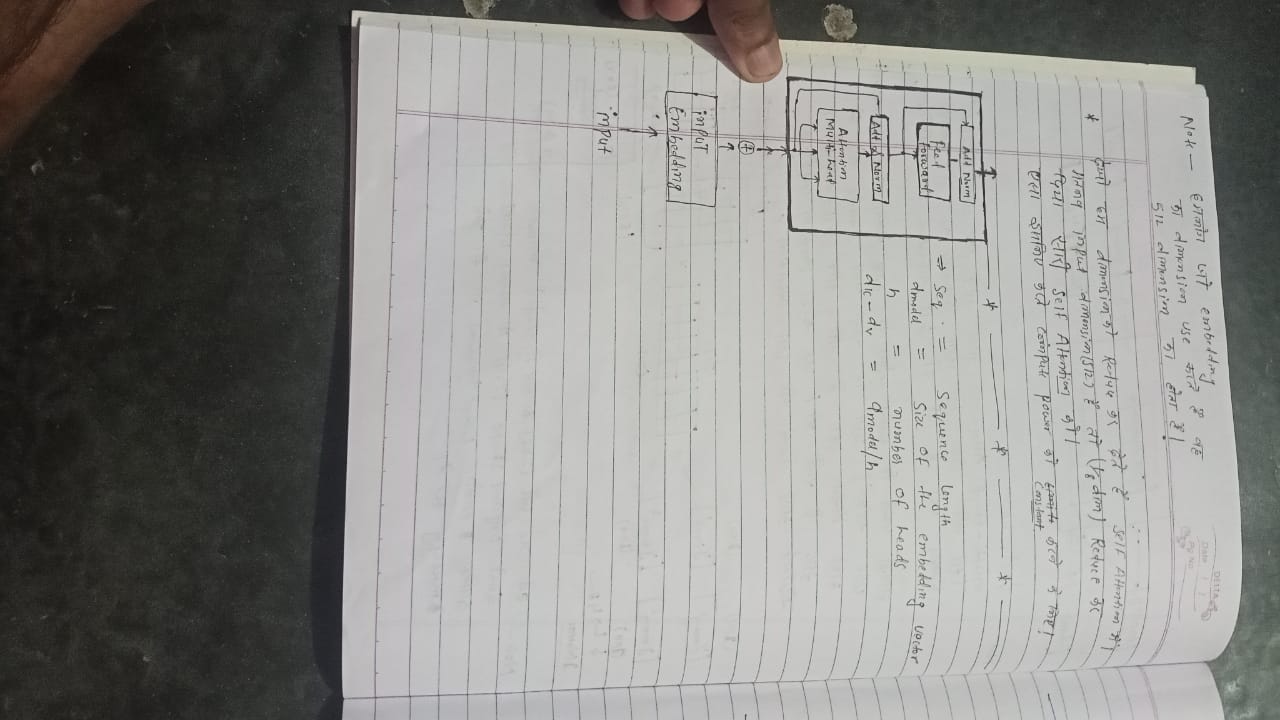 Note — हमलोग जो embedding
का dimension use करते हैं वह
512 dimension का होता है!
DELTA
Date / /
Pg No
* हम dimension को Reduce कर देते हैं Self Attention में।
मतलब input dimension(512) है तो (1/8 dim) Reduce कर
दिया सारी Self Attention को।
एसा इसलिए करते compute power को constant करने के लिए!
* * *
Add Norm
Feed
Forward
Add & Norm
Attention
Multi-head
+
input
Embedding
input
⇒ Seq. = Sequence length
dmodel = Size of the embedding vector
h = number of heads
dk - dv = dmodel/h